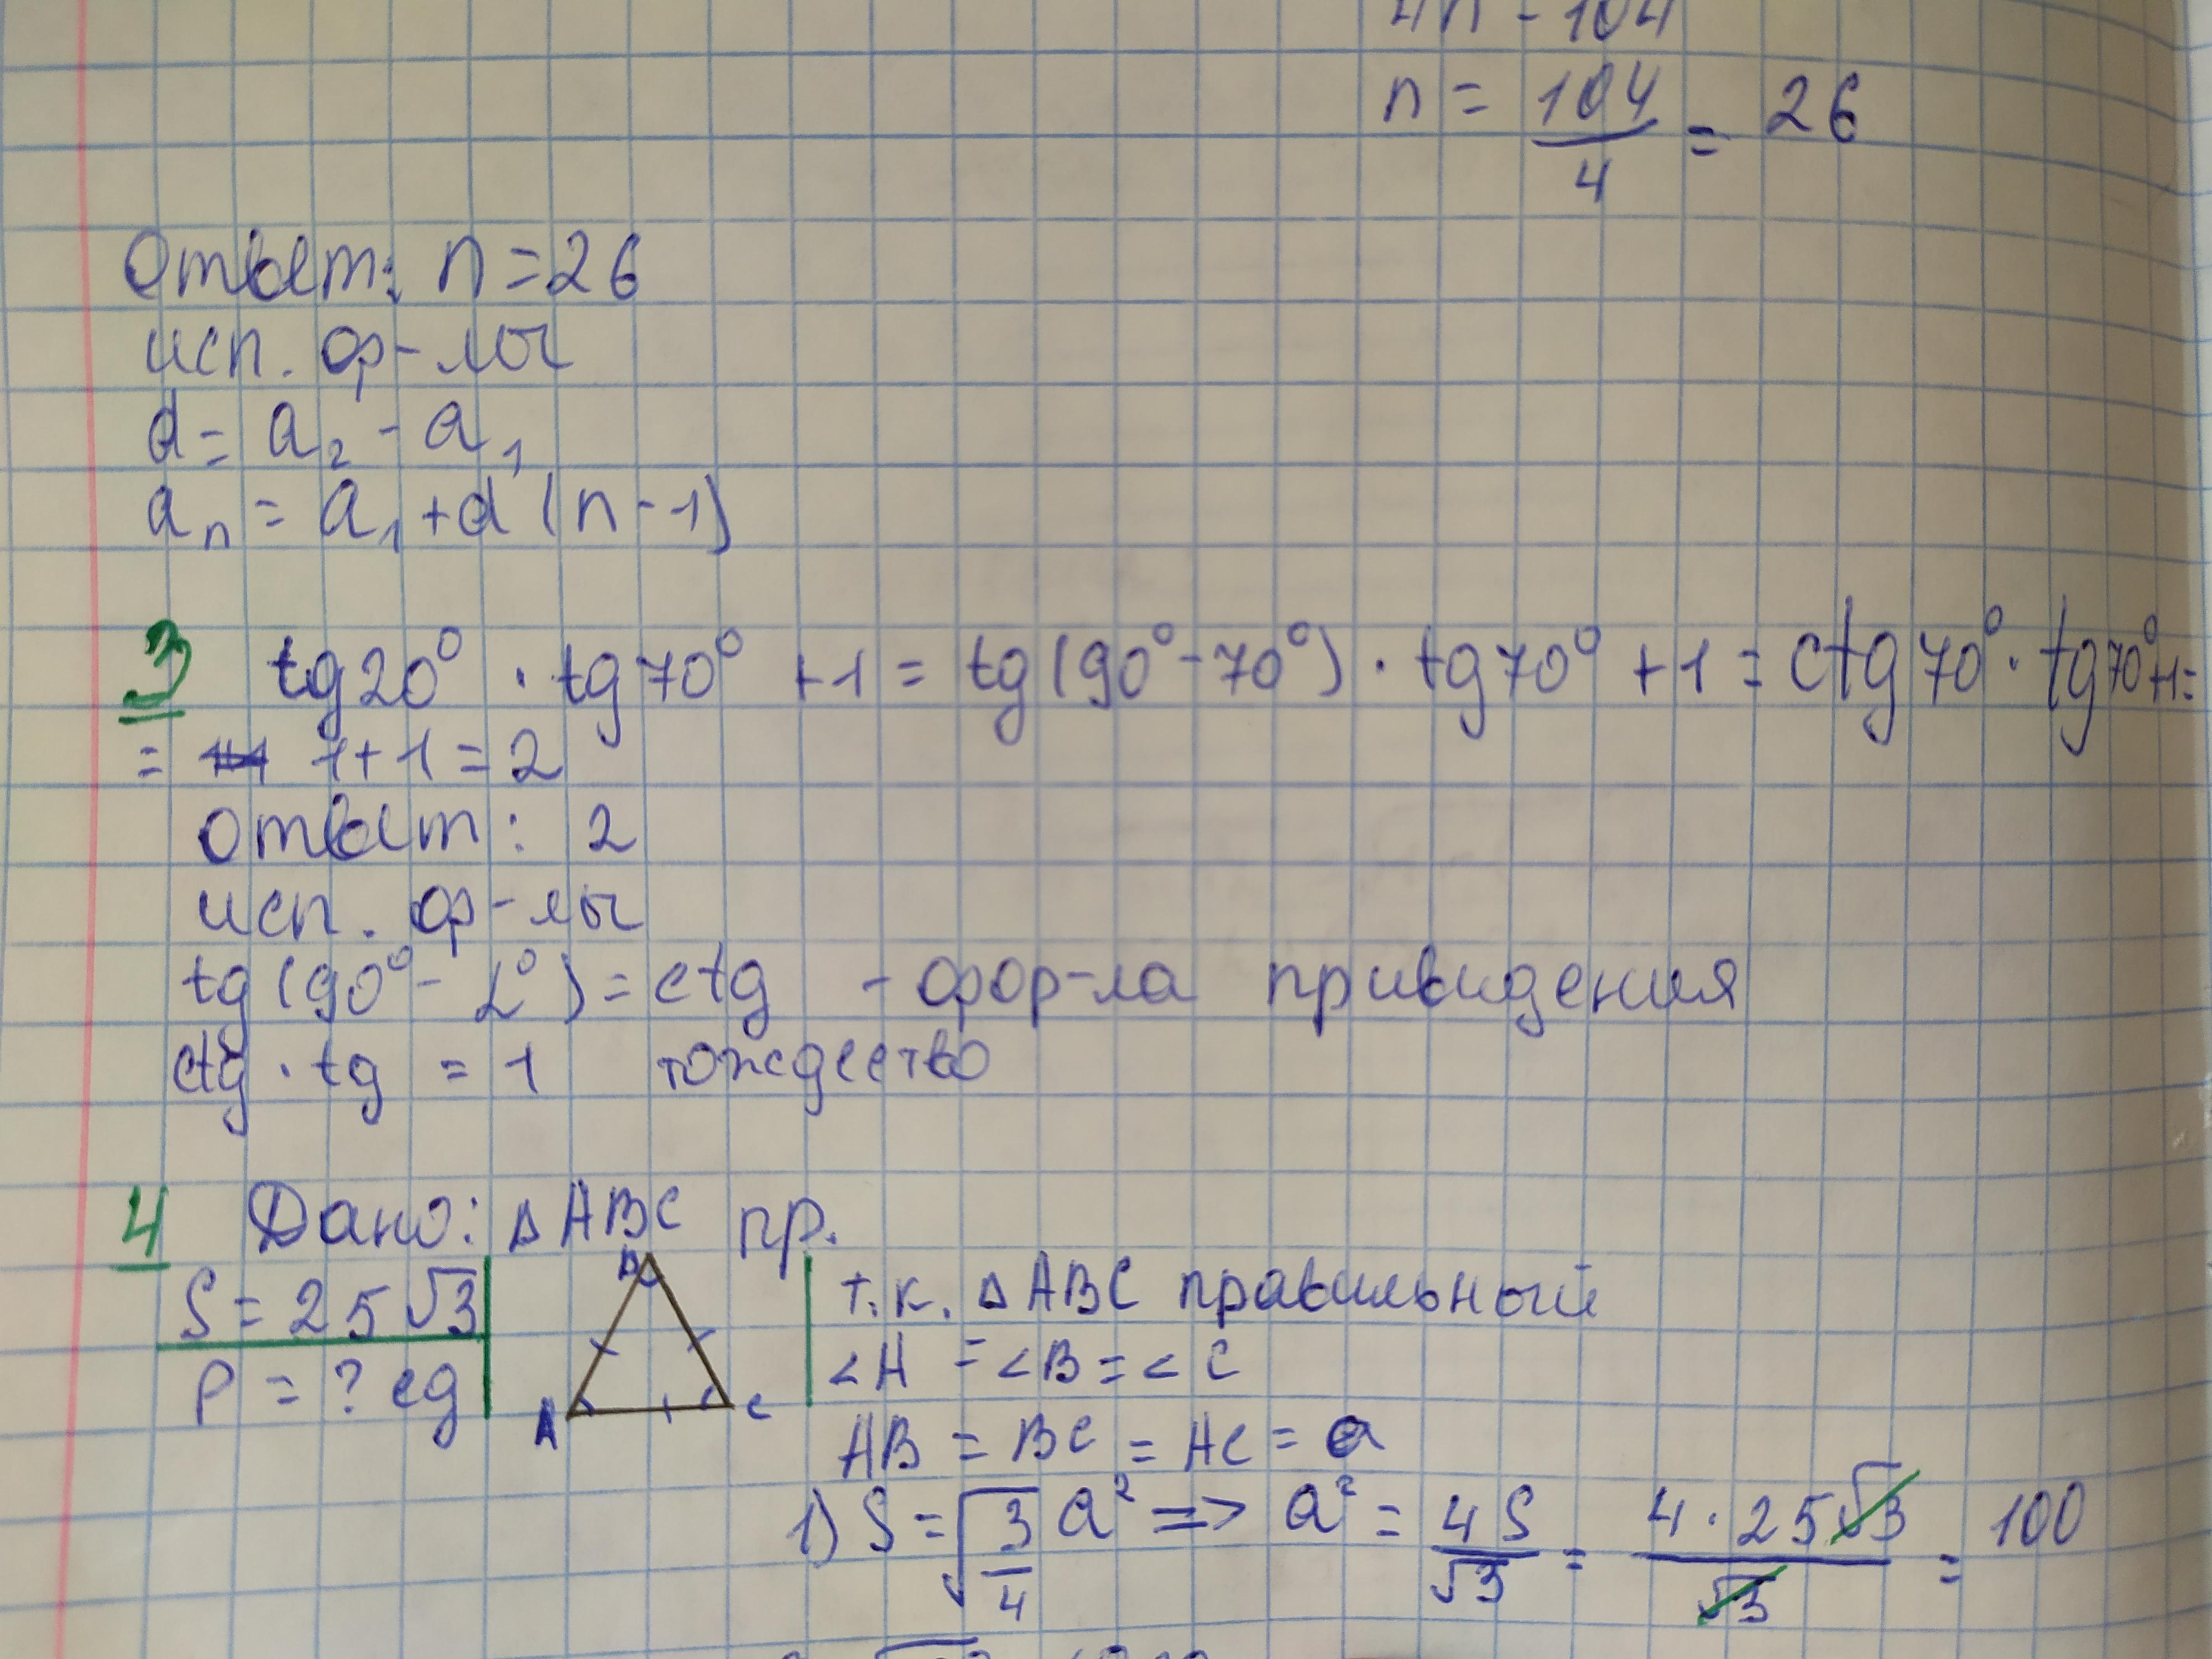 4n = 104
n = 104/4 = 26
Ответ: n = 26
исп. ф-лы
d = a₂ - a₁
aₙ = a₁ + d (n - 1)
3 tg20° · tg70° + 1 = tg(90° - 70°) · tg70° + 1 = ctg70° · tg70° + 1 =
= 1 + 1 = 2
Ответ: 2
исп. ф-лы
tg(90° - α°) = ctg - фор-ла привидения
ctg · tg = 1 тождество
4 Дано: △ABC пр.
S = 25√3
P = ? ед
B
A
C
т.к. △ABC правильный
∠A = ∠B = ∠C
AB = BC = AC = a
1) S = √(3/4) a² => a² = 4S/√3 = 4 · 25√3/√3 = 100